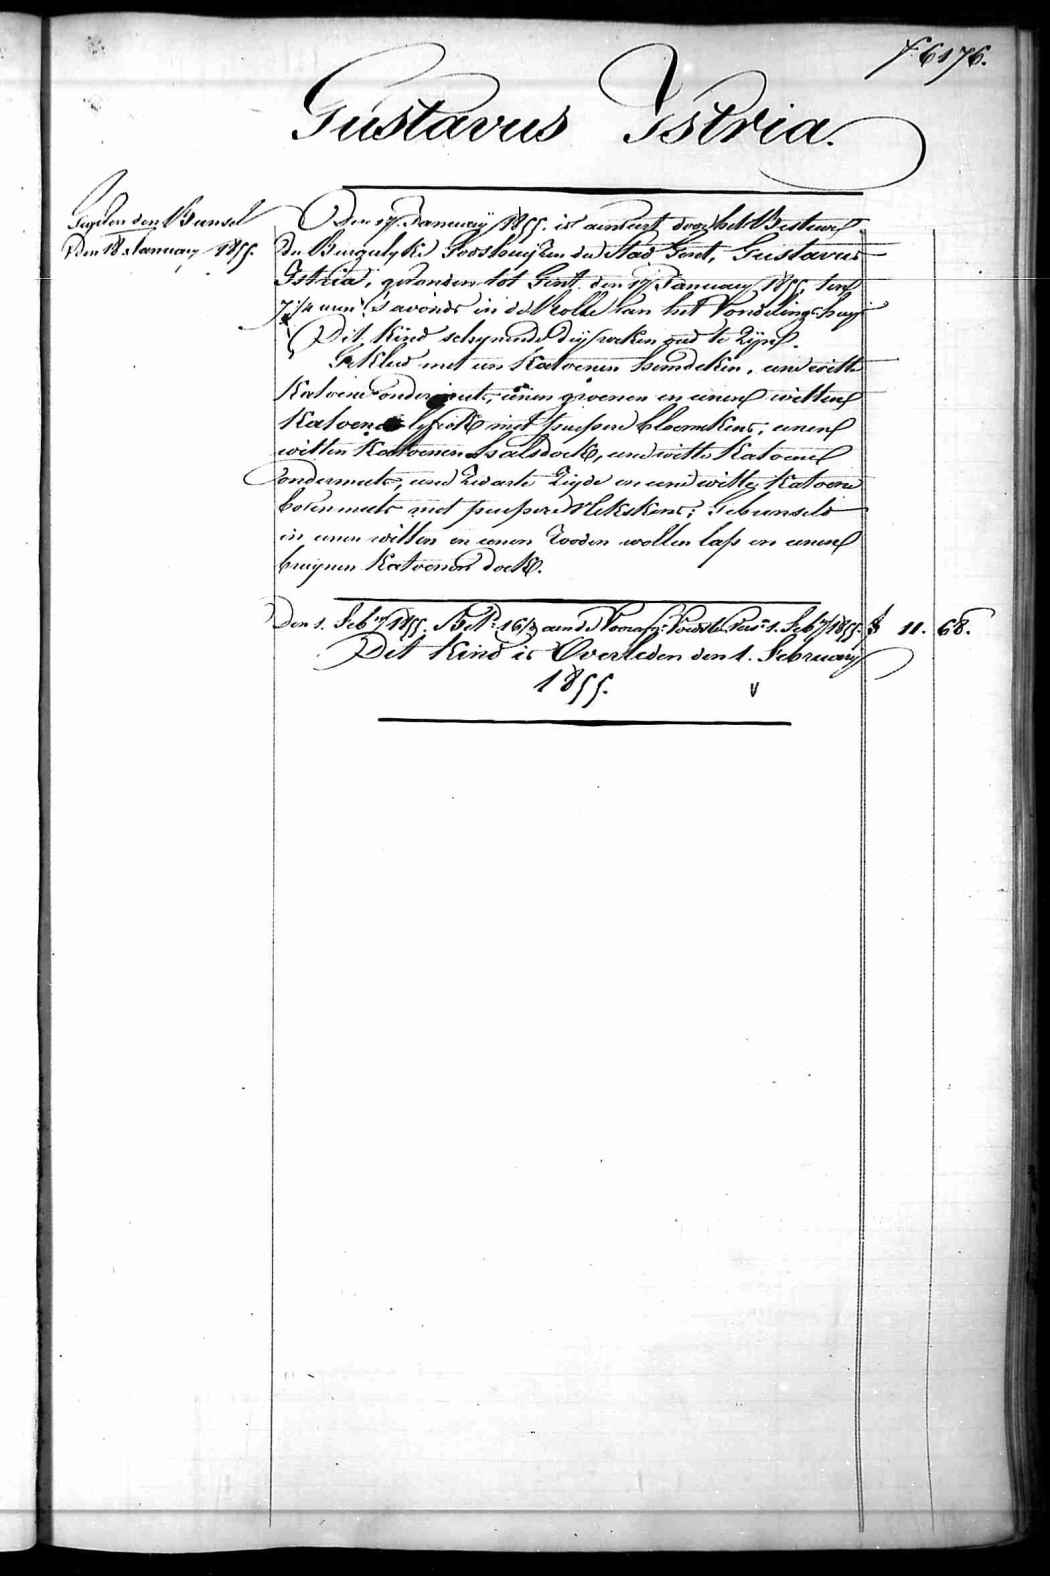 f. 6176.
Gustavus Istria.
Gegeven den Bunsel
Den 18. January 1855.
Den 17. January 1855. is aenveert door het Bestuer
der Burgelyke Godshuyzen der Stad Gent, Gustavus
Istria, gevonden tot Gent den 17 January 1855, ten
7 1/2 uren 's avonds in de Rolle van het Vondelinghuys
Dit kind schynende dry weken oud te Zyn.
Gekleed met een Katoenen hemdeken, eene witte
Katoene ondermuts, eenen groenen en eenen witten
Katoenen lyfrok met purpere bloemkens; eenen
witten Katoenen halsdoek, eene witte Katoene
ondermuts, eene Zwarte Zyde en eene witte Katoene
bovenmuts met purpere vlekskens; Gebunseld
in eenen witten en eenen Rooden wollen lap en eenen
bruynen Katoenen doek.
Den 1. Feby 1855. Bet. 16/3 aen de Voorsz. Voedster Pens. 1. Feby 1855. f 11. 68.
Dit Kind is Overleden den 1. February
1855.